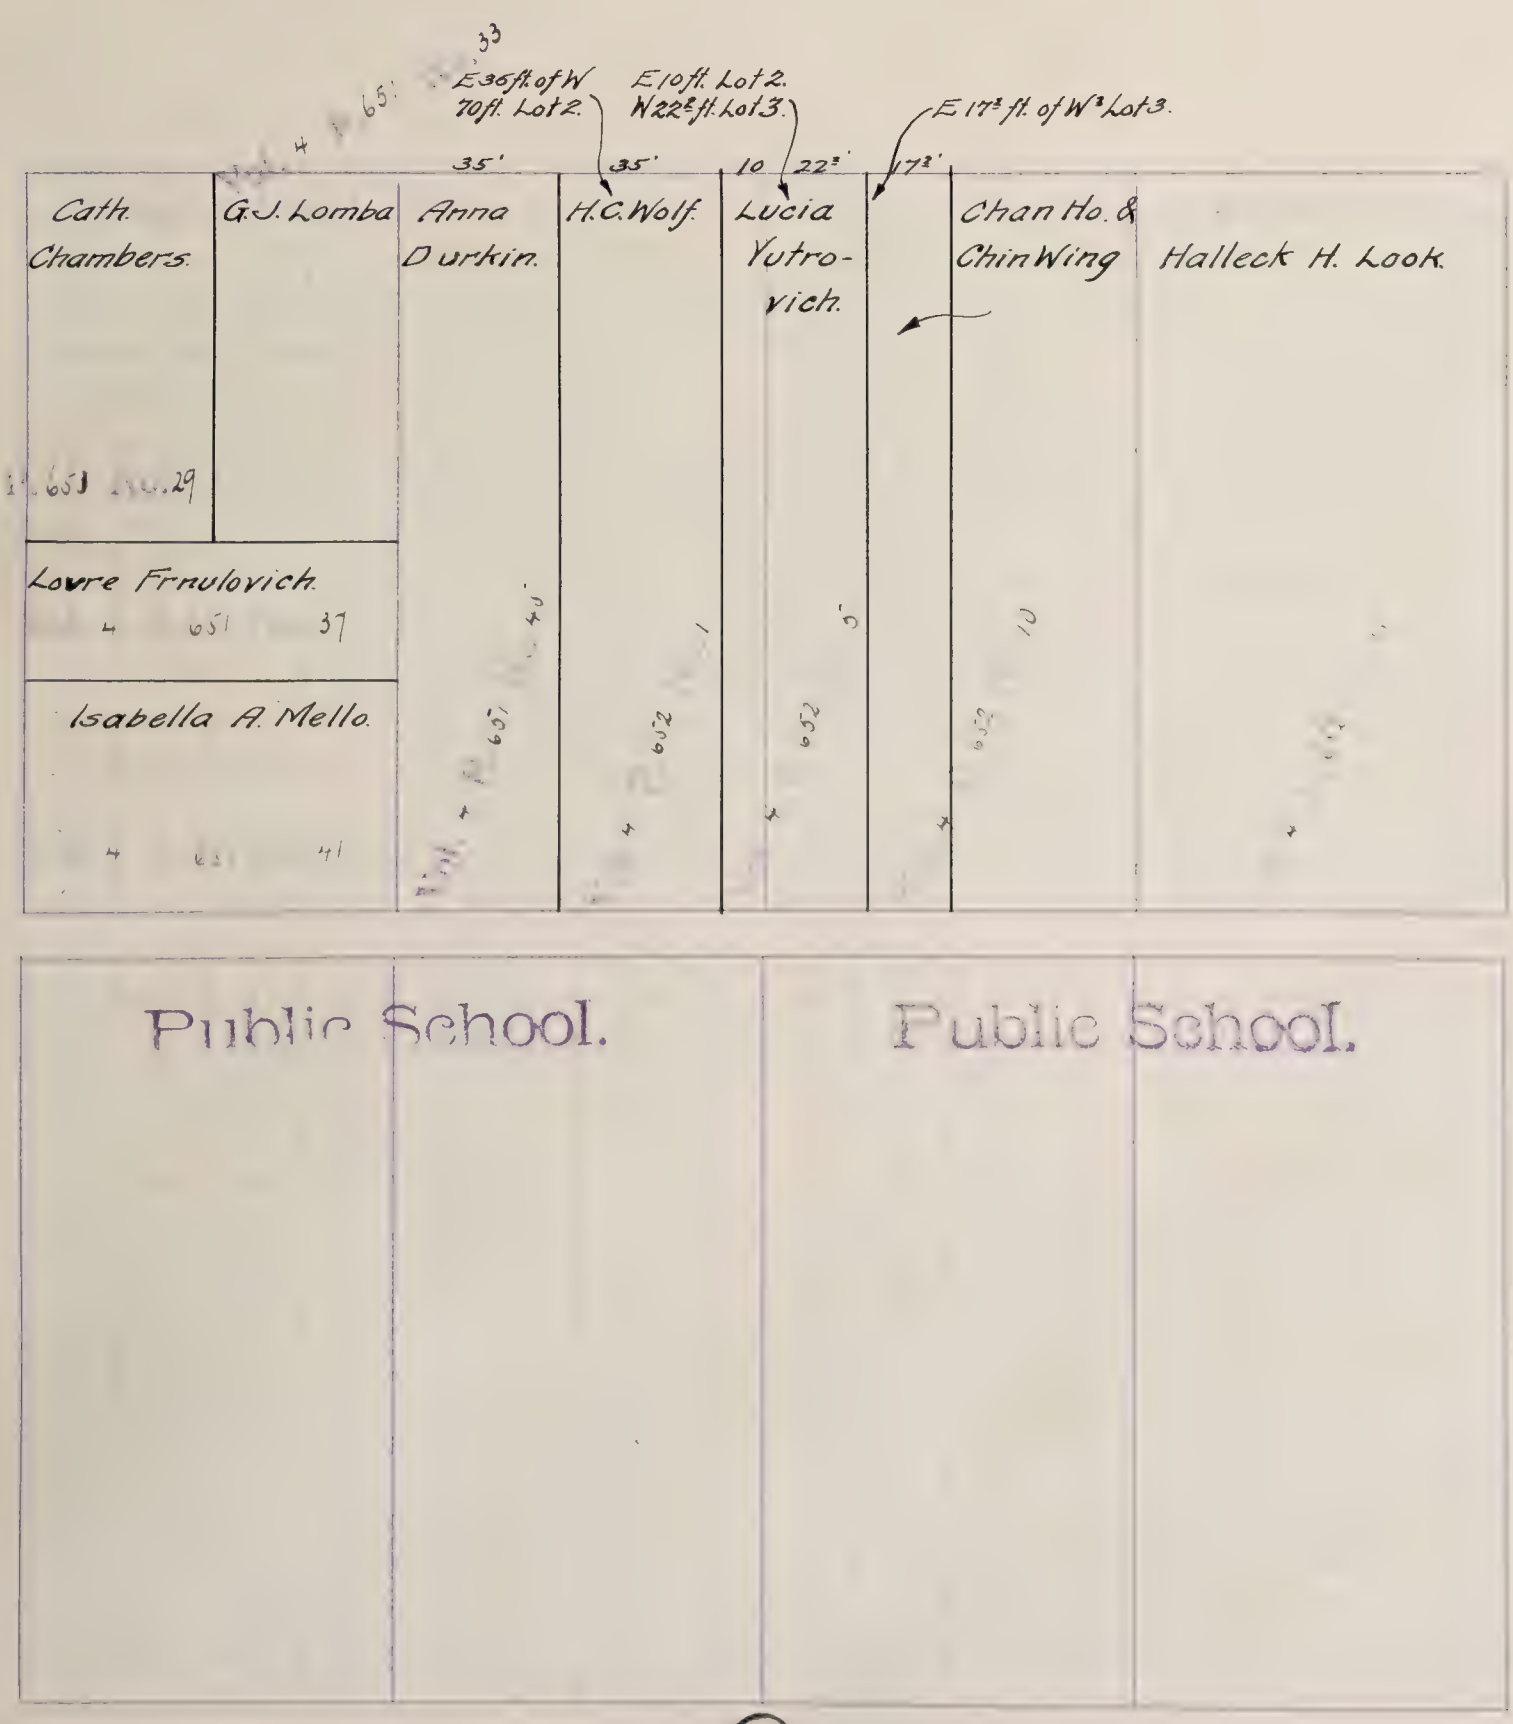 33
651
4
E 35 ft. of W
70 ft. Lot 2.
E 10 ft. Lot 2.
W 22² ft. Lot 3.
E 17³ ft. of W² Lot 3.
35'
35'
10
22²'
17³'
Cath.
Chambers.
G.J. Lomba
Anna
Durkin.
H.C. Wolf.
Lucia
Yutro-
vich.
Chan Ho. &
Chin Wing
Halleck H. Look.
651 29
Lovre Frnulovich.
4 651 37
Isabella A. Mello.
4 651 41
Vol. 4 P. 651 45
4 P. 652 1
4 652 5
4 652 10
4
Public School.
Public School.